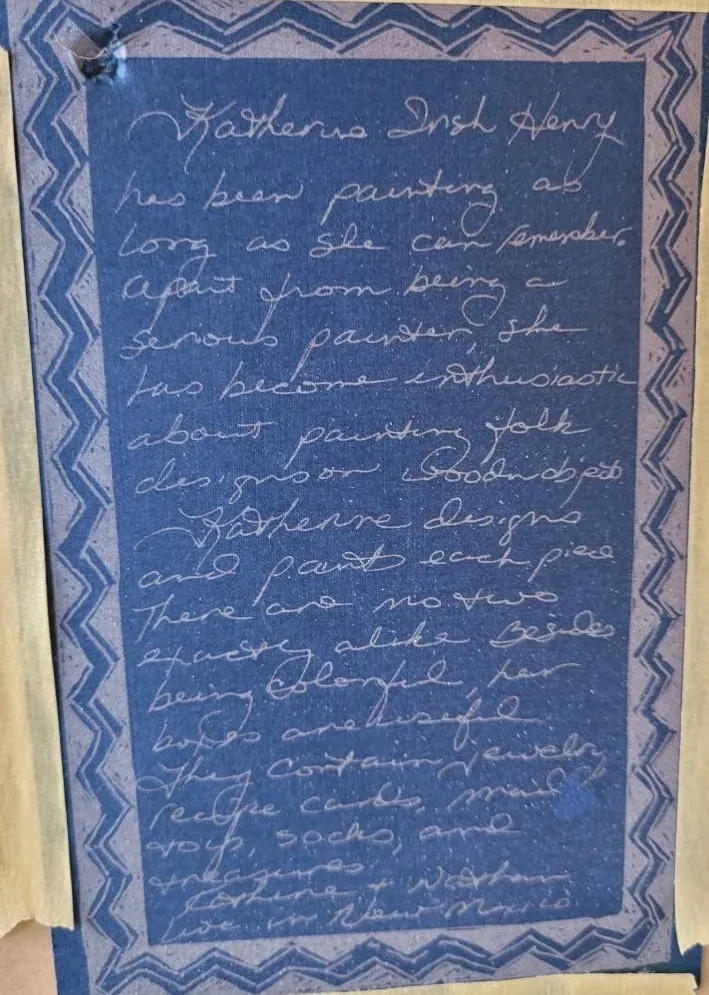 Katherine Irish Henry
has been painting as
long as she can remember.
Apart from being a
serious painter, she
has become enthusiastic
about painting folk
designs on wooden objects.
Katherine designs
and paints each piece.
There are no two
exactly alike. Besides
being colorful, her
boxes are useful
They contain jewelry
recipe cards, mail
toys, socks, and
treasures
Katherine + Nathan
live in New Mexico